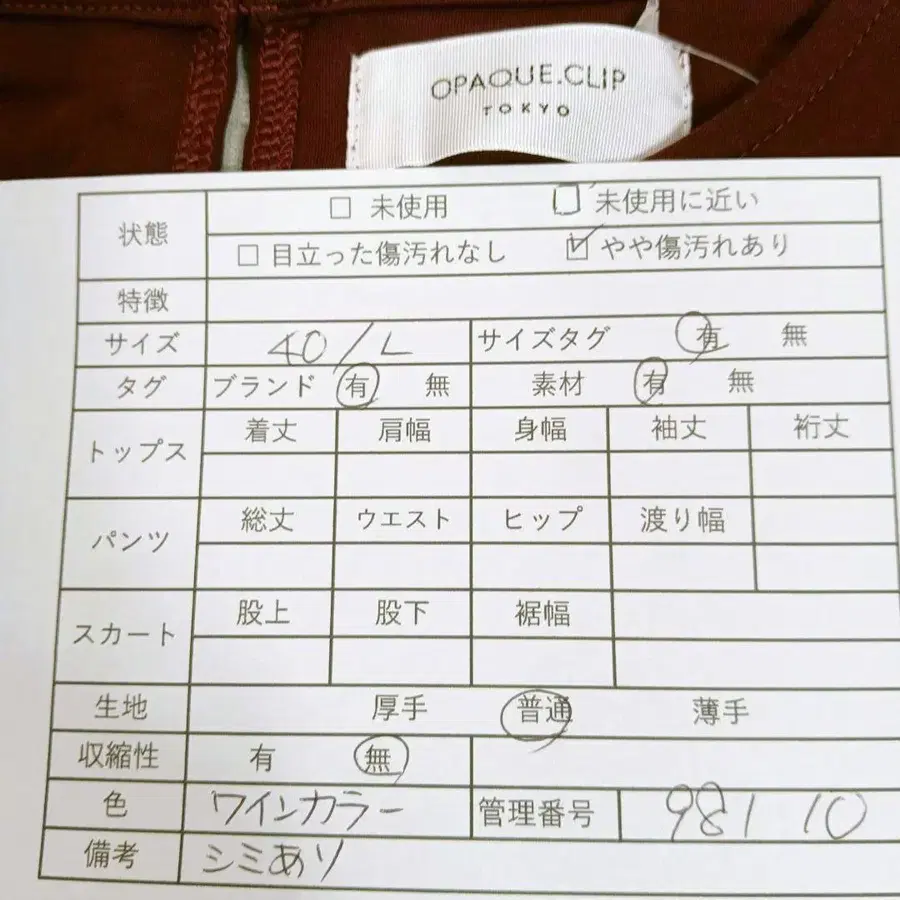 OPAQUE.CLIP
TOKYO
状態 □ 未使用 □ 未使用に近い
□ 目立った傷汚れなし ☑ やや傷汚れあり
特徴
サイズ 40/L サイズタグ 有 無
タグ ブランド 有 無 素材 有 無
トップス 着丈 肩幅 身幅 袖丈 裄丈
パンツ 総丈 ウエスト ヒップ 渡り幅
スカート 股上 股下 裾幅
生地 厚手 普通 薄手
収縮性 有 無
色 ワインカラー 管理番号 981 10
備考 シミあり